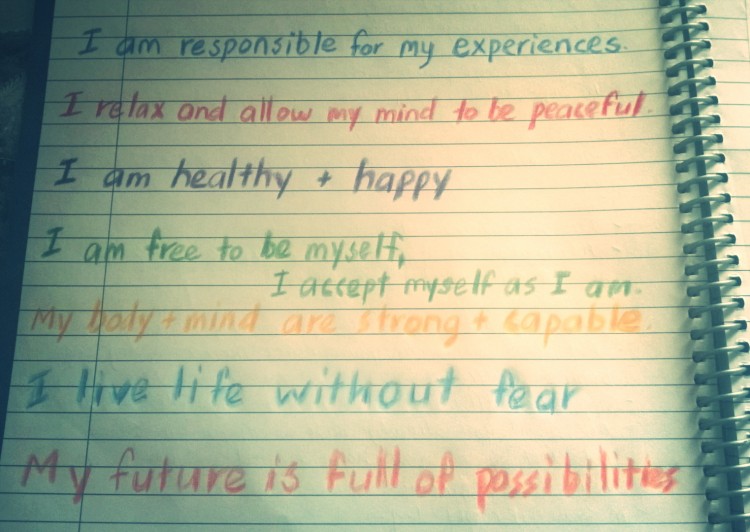 I am responsible for my experiences.
I relax and allow my mind to be peaceful.
I am healthy + happy
I am free to be myself,
I accept myself as I am.
My body + mind are strong + capable.
I live life without fear
My future is full of possibilities